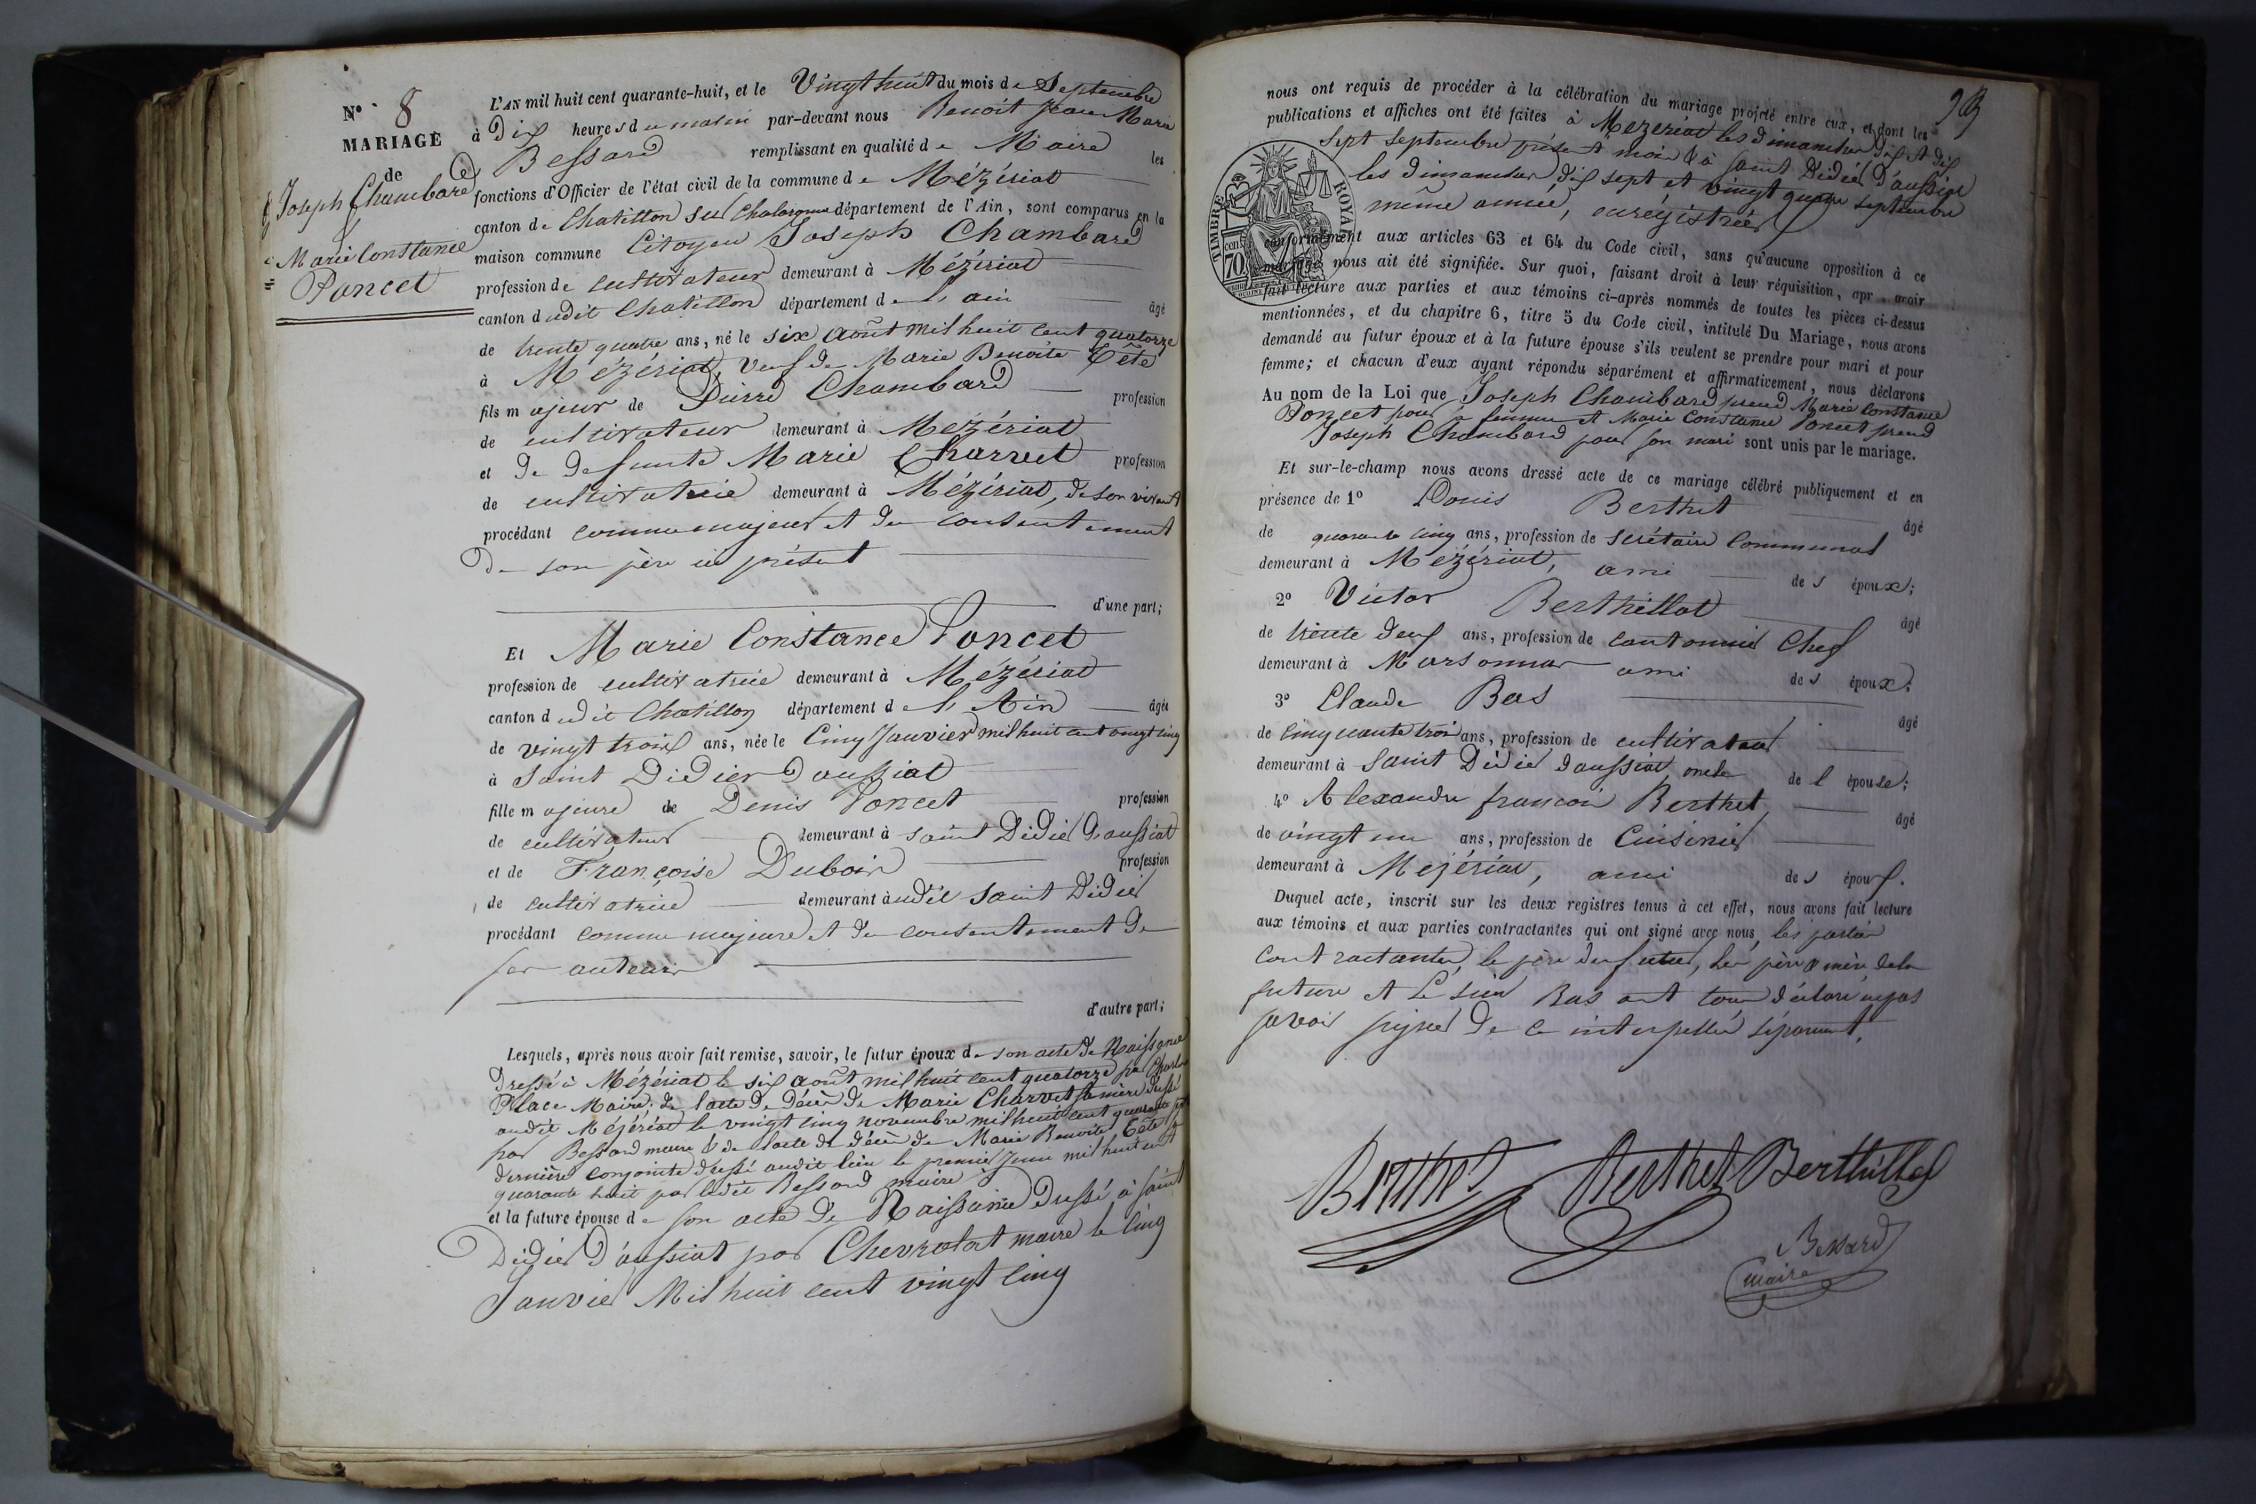 N° 8
MARIAGE
de
Joseph Chambard
&
Marie Constance
Poncet
L'AN mil huit cent quarante-huit, et le Vingt huit du mois de Septembre
à Dix heures du matin par-devant nous Benoit Jean Marie
Bessard remplissant en qualité de Maire les
fonctions d'Officier de l'état civil de la commune de Mézériat
canton de Chatillon sur Chalaronne département de l'Ain, sont comparus en la
maison commune Citoyen Joseph Chambard
profession de cultivateur demeurant à Mézériat
canton dudit Chatillon département de l'ain âgé
de trente quatre ans, né le six août mil huit cent quatorze
à Mézériat, Veuf de Marie Benoite Tête
fils majeur de Pierre Chambard profession
de cultivateur demeurant à Mézériat
et de Defunte Marie Charvet profession
de cultivatrice demeurant à Mézériat, de son vivant
procédant comme majeur et du consentement
De son père ici présent
d'une part;
Et Marie Constance Poncet
profession de cultivatrice demeurant à Mézériat
canton dudit Chatillon département de l'Ain âgée
de vingt trois ans, née le Cinq Janvier mil huit cent vingt cinq
à Saint Didier D'aussiat
fille majeure de Denis Poncet profession
de cultivateur demeurant à saint Didier D'aussiat
et de Françoise Dubois profession
de cultivatrice demeurant audit Saint Didier
procédant comme majeure et du consentement De
ses auteurs
d'autre part;
Lesquels, après nous avoir fait remise, savoir, le futur époux de son acte de Naissance
Dressé à Mézériat le six août mil huit cent quatorze par
Place Maire; de l'acte De Décès de Marie Charvet sa mère Dressé
audit Méjériat le vingt cinq novembre mil huit cent quarante
par Bessard maire & de l'acte de décès de Marie Benoite Tête sa
dernière conjointe dressé audit lieu le premier mil huit cent
quarante huit par ledit Bessard maire
et la future épouse de son acte de Naissance Dressé à saint
Didier D'aussiat par Chevrolat maire le cinq
Janvier Mil huit cent vingt cinq
nous ont requis de procéder à la célébration du mariage projeté entre eux, et dont les
publications et affiches ont été faites à Mezeriat les dimanches dix et dix
sept septembre présent mois & à saint Didier D'aussiat
les dimanches dix sept et vingt quatre septembre
même année, enregistrées
TIMBRE ROYAL
70
conformément aux articles 63 et 64 du Code civil, sans qu'aucune opposition à ce
mariage nous ait été signifiée. Sur quoi, faisant droit à leur réquisition, apr avoir
fait lecture aux parties et aux témoins ci-après nommés de toutes les pièces ci-dessus
mentionnées, et du chapitre 6, titre 5 du Code civil, intitulé Du Mariage, nous avons
demandé au futur époux et à la future épouse s'ils veulent se prendre pour mari et pour
femme; et chacun d'eux ayant répondu séparément et affirmativement, nous déclarons
Au nom de la Loi que Joseph Chambard prend Marie Constance
Poncet pour sa femme et Marie Constance Poncet prend
Joseph Chambard pour son mari sont unis par le mariage.
Et sur-le-champ nous avons dressé acte de ce mariage célébré publiquement et en
présence de 1° Louis Berthet âgé
de quarante cinq ans, profession de secrétaire Communal
demeurant à Mézériat, ami des époux;
2° Victor Berthillot âgé
de trente deux ans, profession de cantonnier Chef
demeurant à Marsonnas ami des époux;
3° Claude Bas âgé
de cinquante trois ans, profession de cultivateur
demeurant à Saint Didier d'aussiat, oncle de l'épouse;
4° Alexandre françois Berthet âgé
de vingt un ans, profession de Cuisinier
demeurant à Mejériat, ami des époux.
Duquel acte, inscrit sur les deux registres tenus à cet effet, nous avons fait lecture
aux témoins et aux parties contractantes qui ont signé avec nous, les parties
contractantes, le père du futur, les père & mère de la
future et le sieur Bas ont tous déclaré ne pas
savoir signer De ce interpellés séparément.
Berthet Berthet Berthillot
Bessard
maire